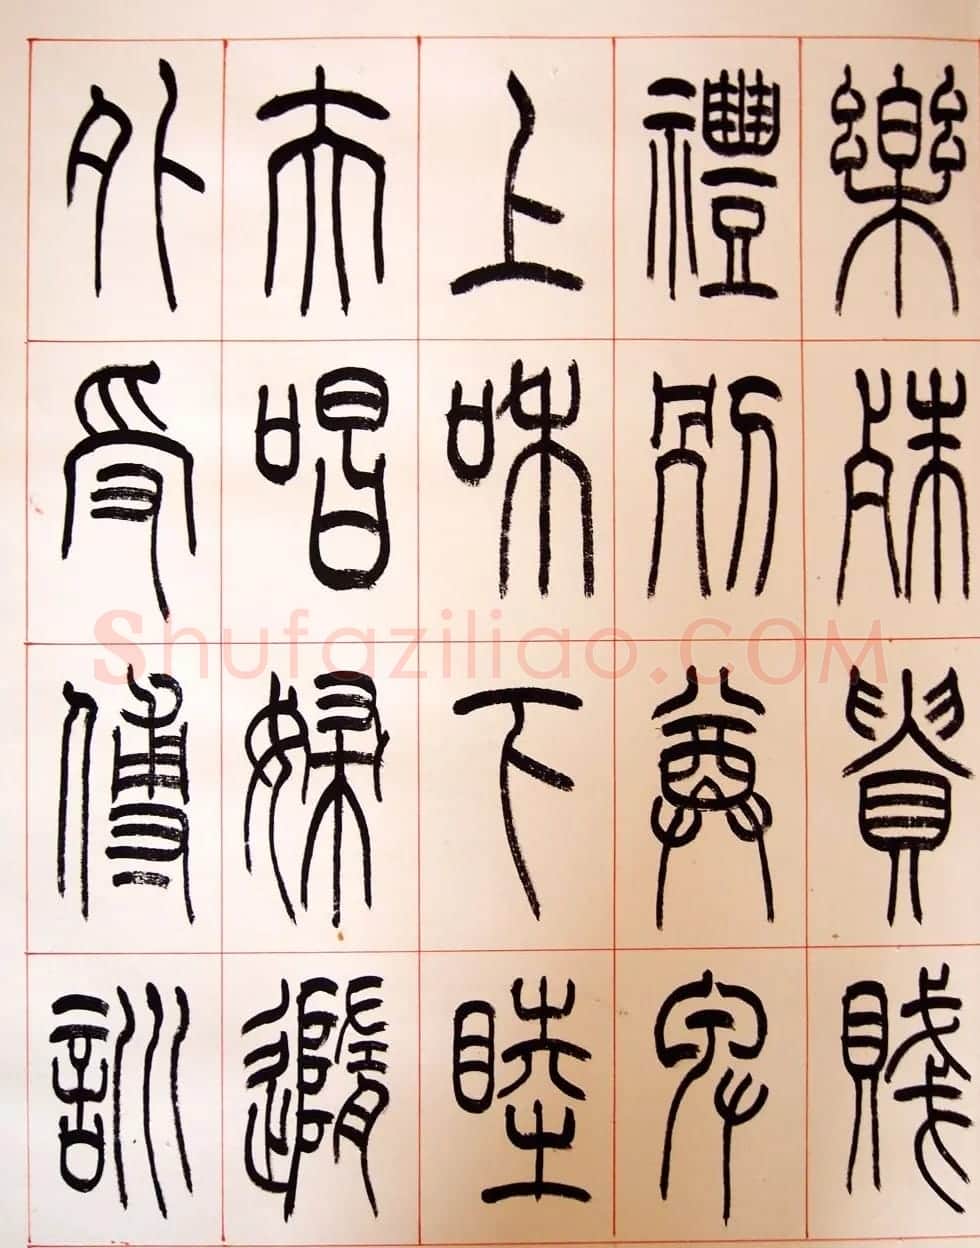 樂殊貴賤
禮別尊卑
上和下睦
夫唱婦隨
外受傅訓
Shufaziliao.COM